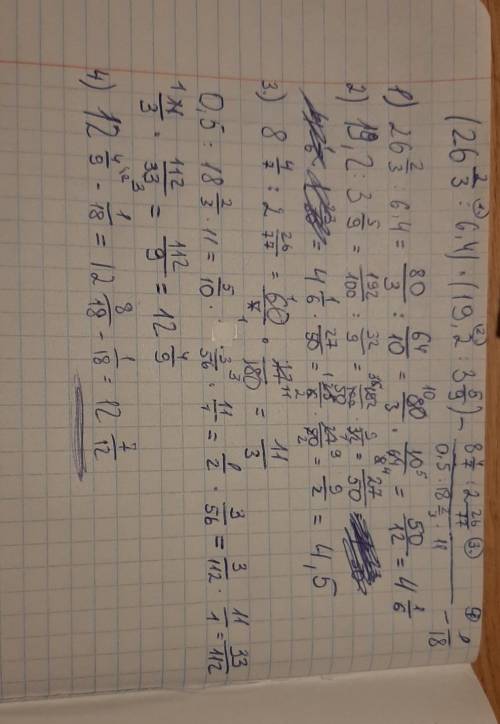 (26 2/3 : 6,4) · (19,2 : 3 5/9) - (8 4/7 : 2 26/77) / (0,5 : 18 2/3 · 11) - 1/18
1) 26 2/3 : 6,4 = 80/3 : 64/10 = 80/3 · 10/64 = 50/12 = 4 1/6
2) 19,2 : 3 5/9 = 192/100 : 32/9 = 192/100 · 9/32 = 27/50 =
= 4 1/6 · 27/50 = 25/6 · 27/50 = 9/2 = 4,5
3) 8 4/7 : 2 26/77 = 60/7 · 77/180 = 11/3
0,5 : 18 2/3 · 11 = 5/10 · 3/56 · 11/1 = 1/2 · 3/56 = 3/112 · 11/1 = 33/112
11/3 · 112/33 = 112/9 = 12 4/9
4) 12 4/9 - 1/18 = 12 8/18 - 1/18 = 12 7/12